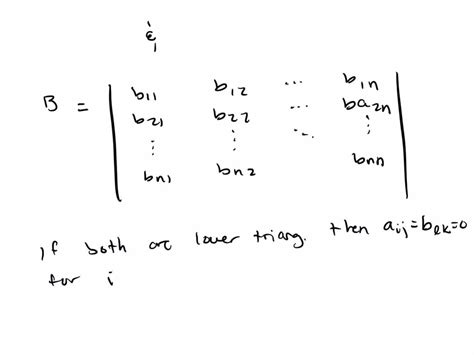 &
B = | b11 b12 ... b1n |
| b21 b22 ... ba2n |
| ⋮ ⋮ ... ⋮ |
| bn1 bn2 bnn |
, if both are lower triang. then aij=bek=0
for i